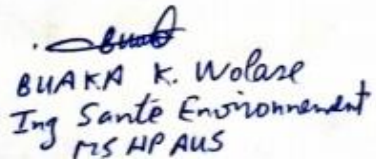 BUAKA K. Wolase
Ing Santé Environnement
MSHPAUS